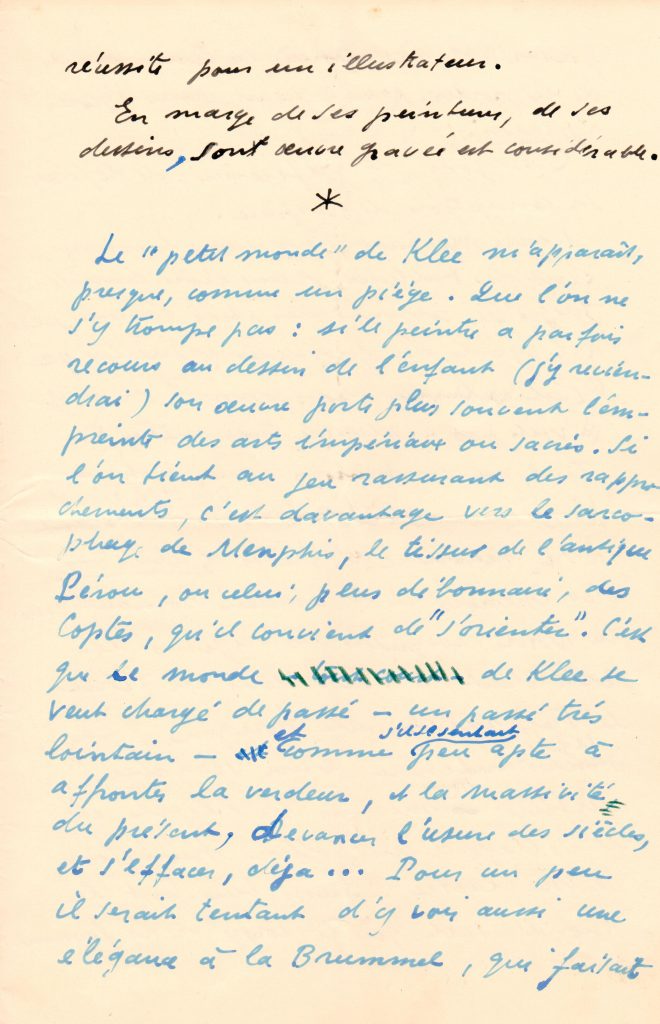 réussite pour un illustrateur.
En marge de ses peintures, de ses
dessins, sont œuvre gravée est considérable.
*
Le "petit monde" de Klee m'apparaît,
presque, comme un piège. Que l'on ne
s'y trompe pas : si le peintre a parfois
recours au dessin de l'enfant (j'y revien-
drai) son œuvre porte plus souvent l'em-
preinte des arts impériaux ou sacrés. Si
l'on tient au jeu rassurant des rappro
chements, c'est davantage vers le sarco-
phage de Memphis, le tissus de l'antique
Pérou, ou celui, plus débonnaire, des
Coptes, qu'il convient de "s'orienter". C'est
que le monde de Klee se
veut chargé de passé – un passé très
lointain – et comme s'il se sentait peu apte à
affronter la verdeur, et la massivité
du présent. Devancer l'usure des siècles,
et s'effacer, déjà... Pour un peu
il serait tentant d'y voir aussi une
élégance à la Brummel, qui faisait